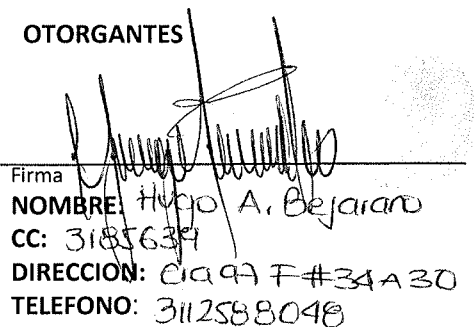 OTORGANTES
Firma
NOMBRE: Hugo A. Bejarano
CC: 3185634
DIRECCION: Cra 97 F #34A30
TELEFONO: 3112588048